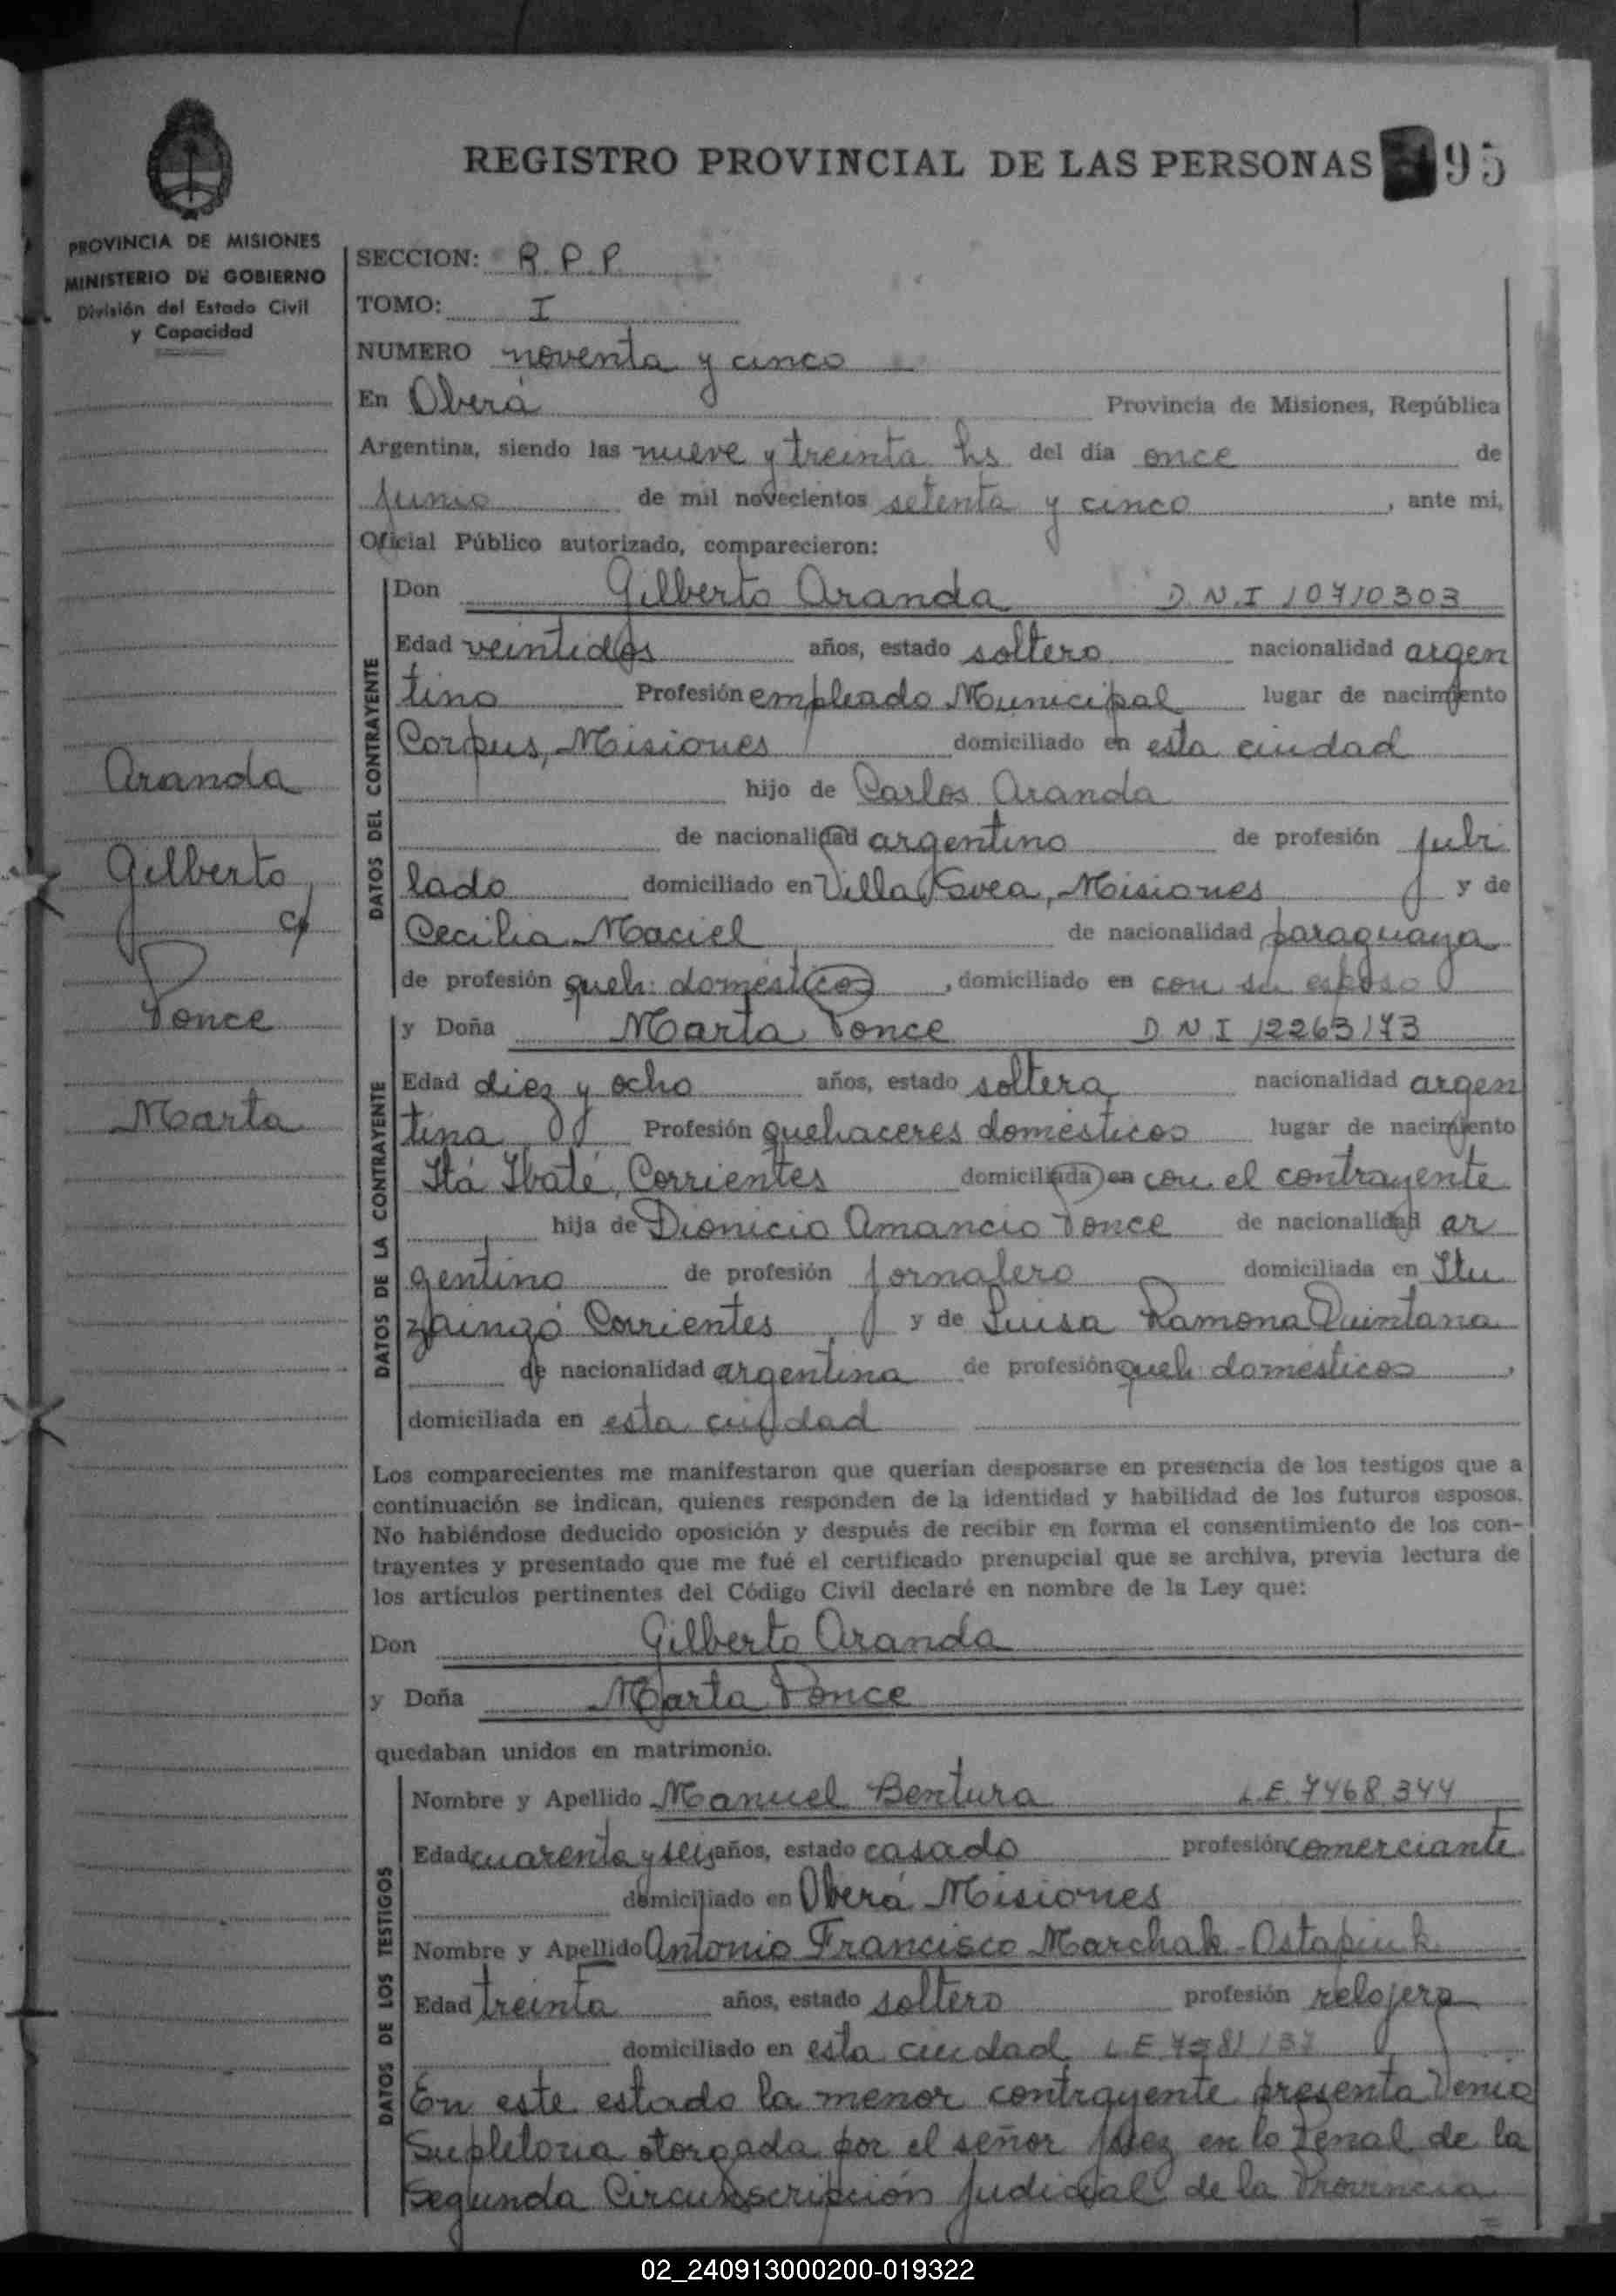 REGISTRO PROVINCIAL DE LAS PERSONAS 95
PROVINCIA DE MISIONES
MINISTERIO DE GOBIERNO
División del Estado Civil
y Capacidad
Aranda
Gilberto
c/
Ponce
Marta
SECCION: R. P. P
TOMO: I
NUMERO noventa y cinco
En Oberá Provincia de Misiones, República
Argentina, siendo las nueve y treinta hs del día once de
junio de mil novecientos setenta y cinco, ante mi,
Oficial Público autorizado, comparecieron:
DATOS DEL CONTRAYENTE
Don Gilberto Aranda D.N.I 10710303
Edad veintidos años, estado soltero nacionalidad argen
tino Profesión empleado Municipal lugar de nacimiento
Corpus, Misiones domiciliado en esta ciudad
hijo de Carlos Aranda
de nacionalidad argentino de profesión jubi
lado domiciliado en Villa Svea, Misiones y de
Cecilia Maciel de nacionalidad paraguaya
de profesión queh: domésticos, domiciliado en con su esposo
DATOS DE LA CONTRAYENTE
y Doña Marta Ponce D N I 12263173
Edad diez y ocho años, estado soltera nacionalidad argen
tina Profesión quehaceres domésticos lugar de nacimiento
Itá Ibaté, Corrientes domiciliada en con el contrayente
hija de Dionicio Amancio Ponce de nacionalidad ar
gentino de profesión jornalero domiciliada en Itu
zaingó Corrientes y de Luisa Ramona Quintana
de nacionalidad argentina de profesión queh: domésticos,
domiciliada en esta ciudad
Los comparecientes me manifestaron que querían desposarse en presencia de los testigos que a
continuación se indican, quienes responden de la identidad y habilidad de los futuros esposos.
No habiéndose deducido oposición y después de recibir en forma el consentimiento de los con-
trayentes y presentado que me fué el certificado prenupcial que se archiva, previa lectura de
los artículos pertinentes del Código Civil declaré en nombre de la Ley que:
Don Gilberto Aranda
y Doña Marta Ponce
quedaban unidos en matrimonio.
DATOS DE LOS TESTIGOS
Nombre y Apellido Manuel Bentura L.E. 7468.344
Edad cuarenta y seis años, estado casado profesión comerciante
domiciliado en Oberá Misiones
Nombre y Apellido Antonio Francisco Marchak-Ostapiuk
Edad treinta años, estado soltero profesión relojero
domiciliado en esta ciudad L E
En este estado la menor contrayente presenta Venia
Supletoria otorgada por el señor Juez en lo Penal de la
Segunda Circunscripción Judicial de la Provincia
02_240913000200-019322